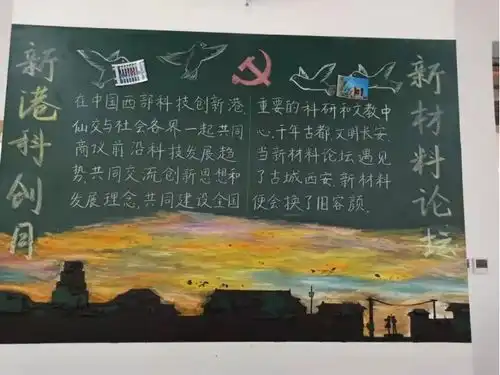 新港科创月
在中国西部科技创新港,
仙交与社会各界一起共同
商议前沿科技发展趋
势共同交流创新思想和
发展理念,共同建设全国
重要的科研和文教中
心.千年古都,文明长安,
当新材料论坛遇见
了古城西安,新材料
便会换了旧容颜.
新材料论坛